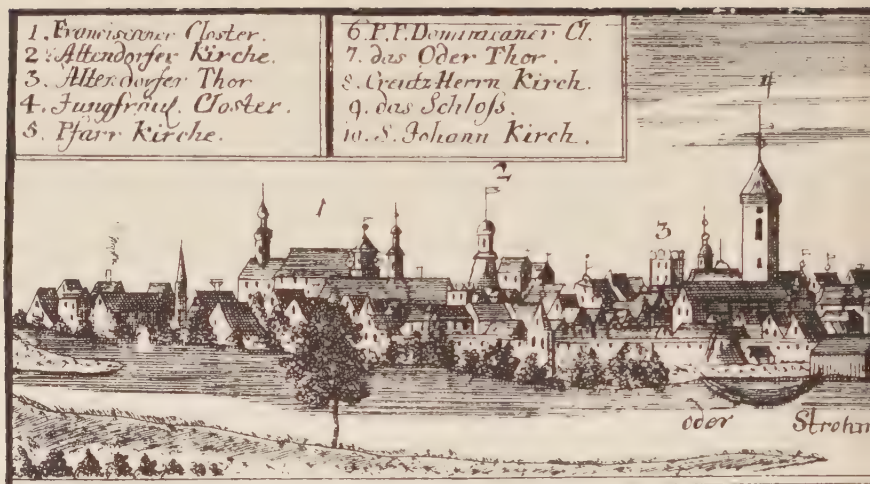 1. Franciscaner Closter.
2. Altendorfer Kirche.
3. Altendorfer Thor
4. Jungfrau Closter.
5. Pfarr Kirche.
6. P.P. Dominicaner Cl.
7. das Oder Thor.
8. Creutz Herrn Kirch.
9. das Schloss.
10. S. Johann Kirch.
1
2
3
4
oder Strohm